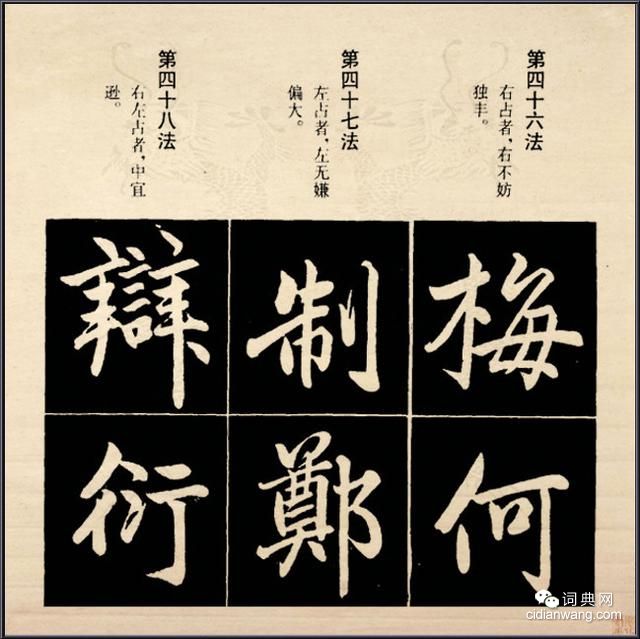 第四十六法
右占者，右不妨
独丰。
第四十七法
左占者，左无嫌
偏大。
第四十八法
右左占者，中宜
逊。
梅何
制鄭
辯衍
词典网
cidianwang.com